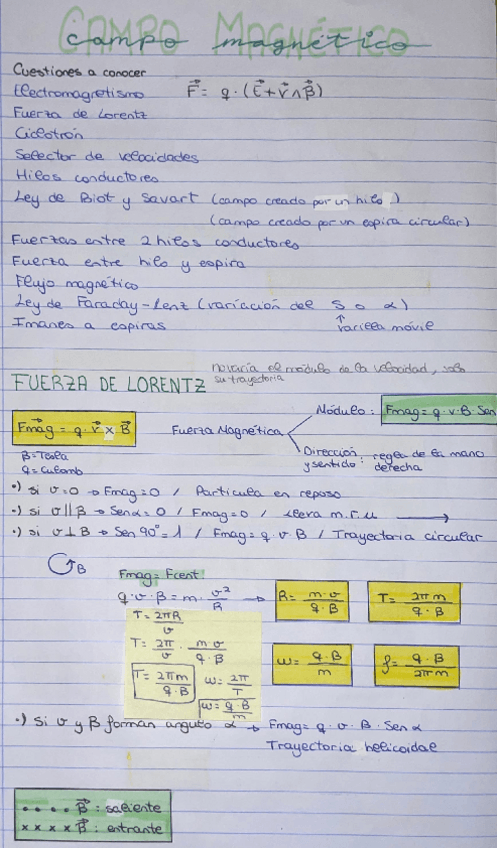 CAMPO MAGNÉTICO
campo magnético
Cuestiones a conocer
Electromagnetismo F⃗ = q · (E⃗ + v⃗ ∧ B⃗)
Fuerza de Lorentz
Ciclotrón
Selector de velocidades
Hilos conductores
Ley de Biot y Savart (campo creado por un hilo)
(campo creado por un espira circular)
Fuerzas entre 2 hilos conductores
Fuerza entre hilo y espira
Flujo magnético
Ley de Faraday-Lenz (variación del S o α)
Imanes a espiras ↑ varilla móvil
FUERZA DE LORENTZ no varía el módulo de la velocidad, solo
su trayectoria
Módulo: Fmag = q · v · B · Sen
F⃗mag = q · v⃗ × B⃗
Fuerza Magnética
B = Tesla
q = Culomb
Dirección y sentido: regla de la mano derecha
·) si v = 0 → Fmag = 0 / Partícula en reposo
·) si v || B → Sen α = 0 / Fmag = 0 / lleva m.r.u →
·) si v ⊥ B → Sen 90° = 1 / Fmag = q · v · B / Trayectoria circular
B
Fmag = Fcent.
q · v · B = m · v²/R → R = m · v / q · B T = 2πm / q · B
T = 2πR / v
T = 2π / v · m v / q · B
ω = q · B / m f = q · B / 2πm
T = 2πm / q · B ω = 2π / T
ω = q · B / m
·) Si v y B forman angulo α → Fmag = q · v · B · Sen α
Trayectoria helicoidal
• • • • B⃗ : saliente
x x x x B⃗ : entrante